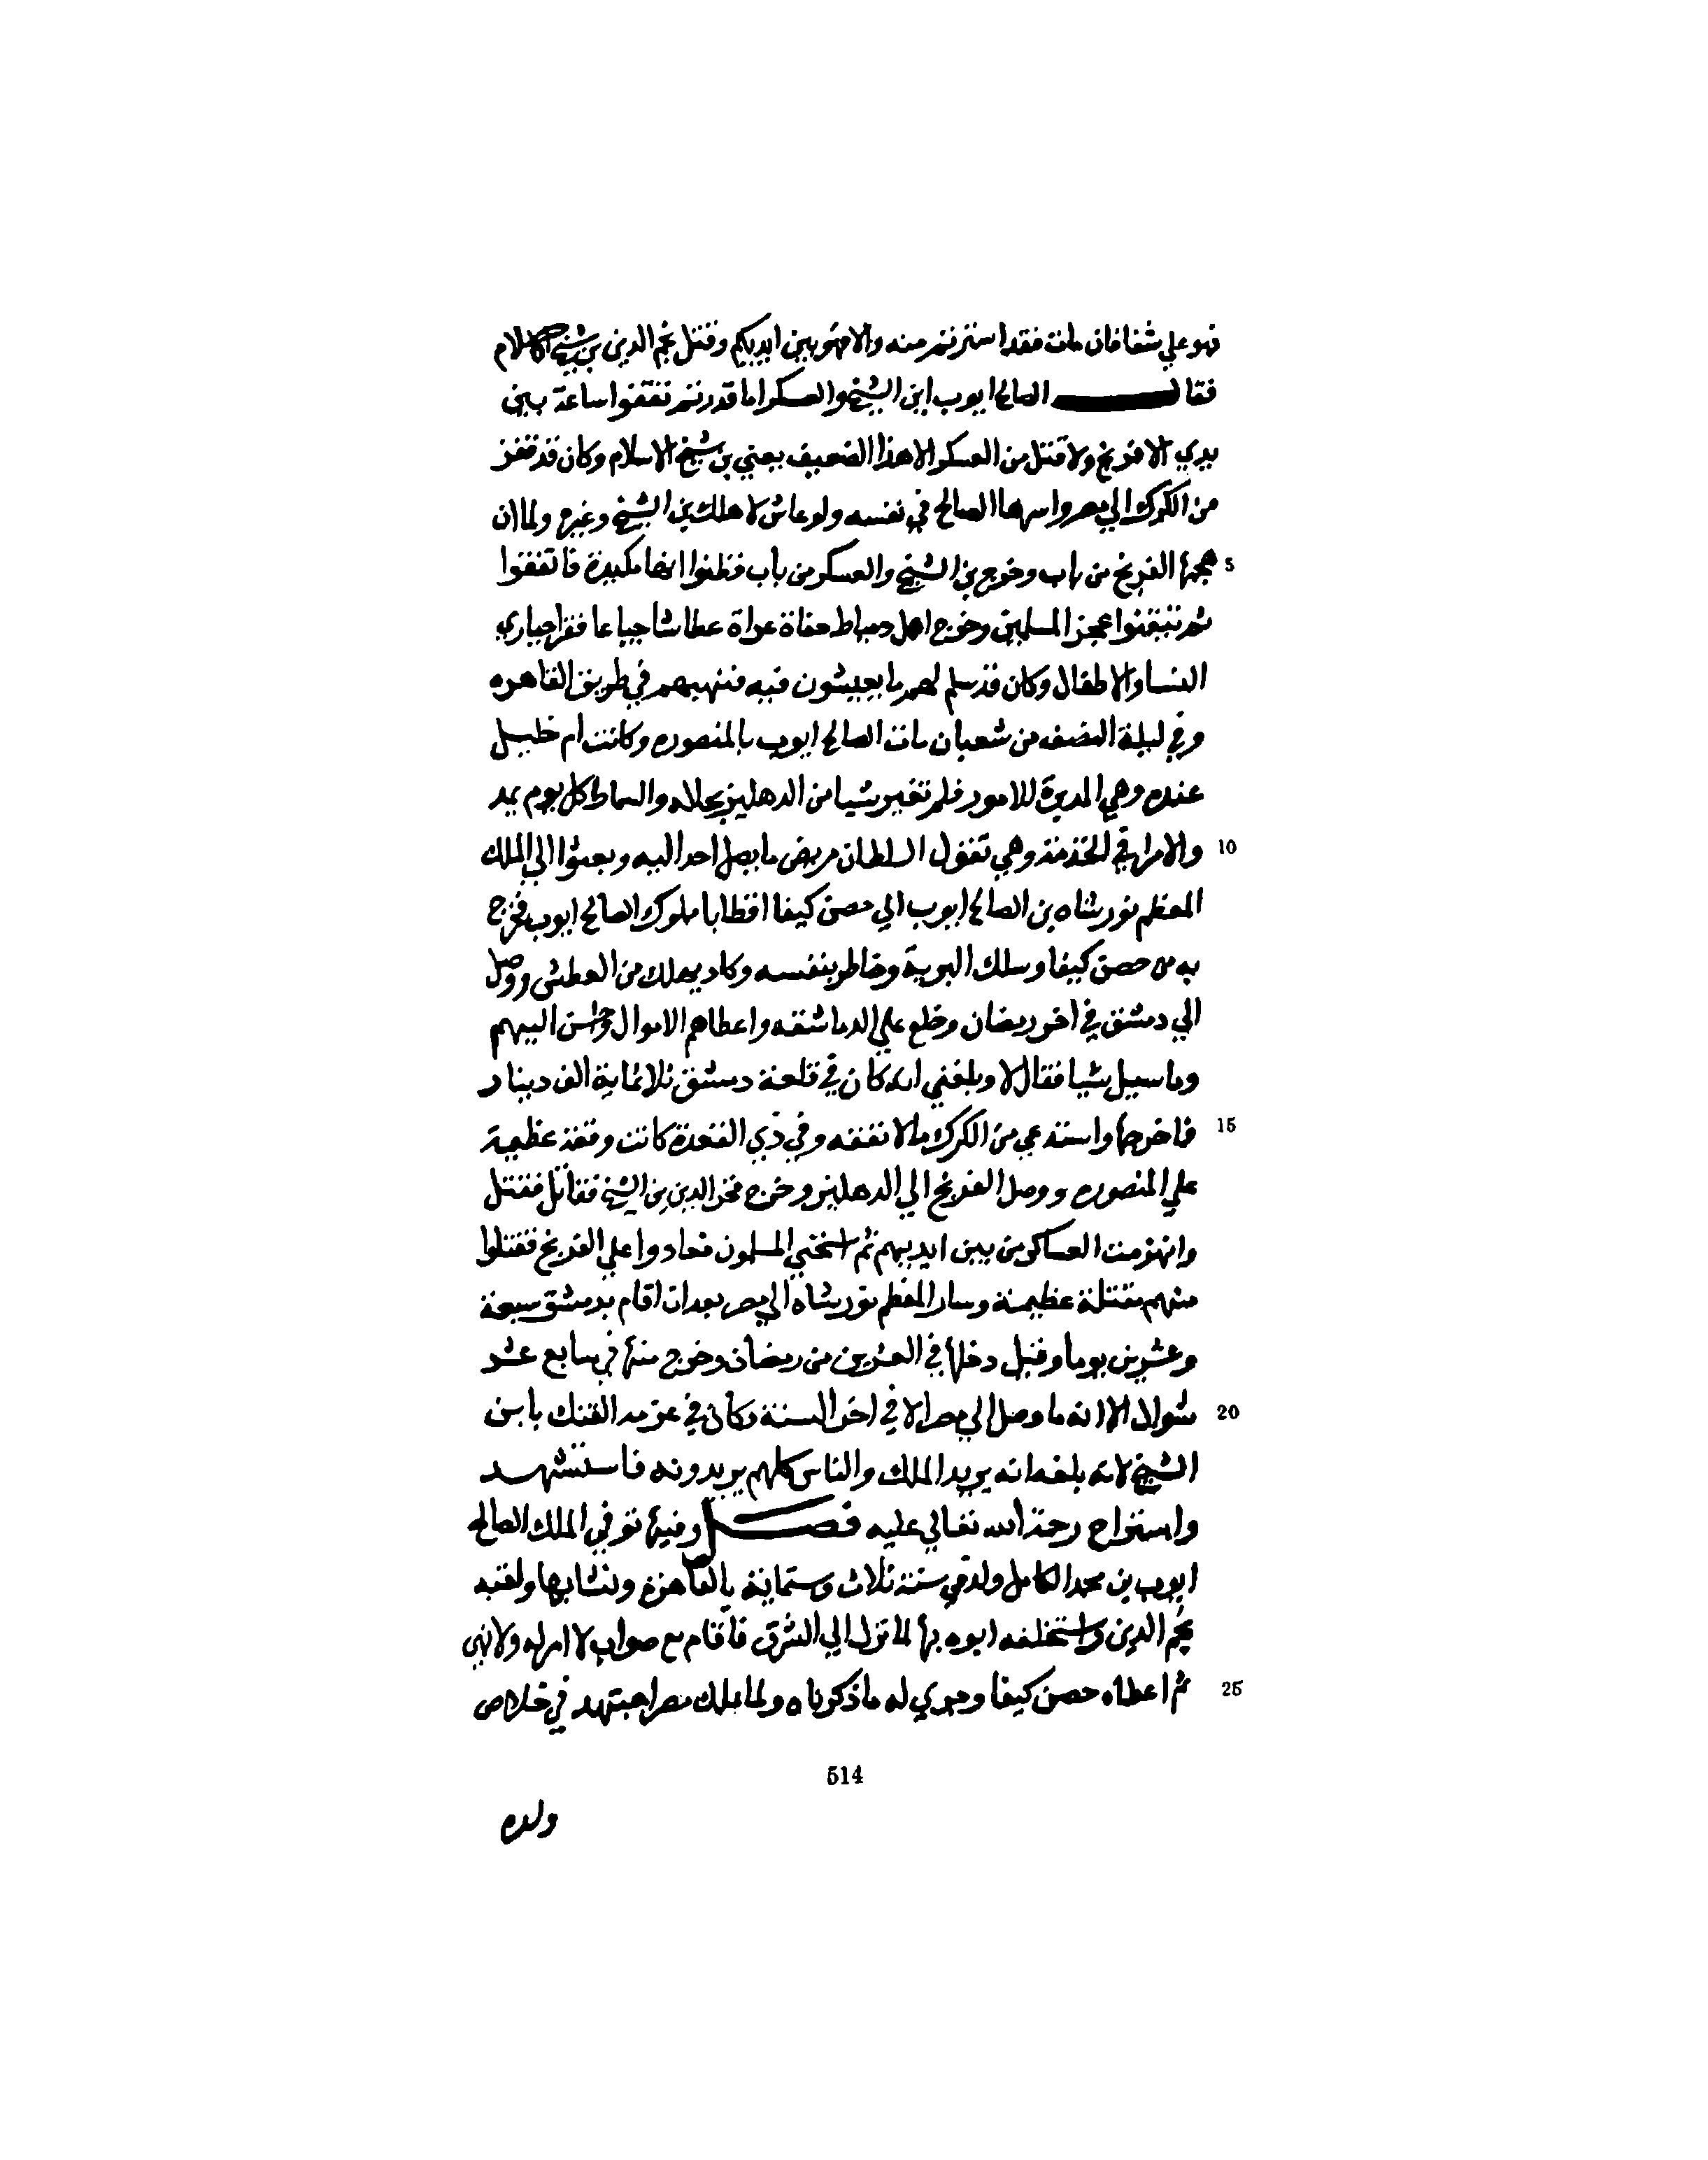 فهو علي شفا فان مات فقد استرتم منه والا فهو بين ايديكم وقتل نجم الدين بن شيخ الاسلام
فقال الصالح ايوب ابن الشيخ والعسكر اما قدرتم تقفوا ساعة بين
يدي الافرنج ولا قتل من العسكر الا هذا الضعيف يعني بن شيخ الاسلام وكان قد قفز
من الكرك الي مصر واسرها الصالح في نفسه ولو عاش لاهلك بن الشيخ وغيره ولما ان
5 هجمها الفرنج من باب وخرج بن الشيخ والعسكر من باب فظنوا انها مكيدة فاتفقوا
ثم تيقنوا عجز المسلمين وخرج اهل دمياط حفاة عراة عطاشا جياعا فقرا حياري
النسا والاطفال وكان قد سلم لهم ما يعيشون فيه فنهبهم في طريق القاهره
وفي ليلة النصف من شعبان مات الصالح ايوب بالمنصوره وكانت ام خليل
عنده وهي المدبرة للامور فلم تغير شيا من الدهليز بحاله والسماط كل يوم يمد
10 والامرا في الخدمة وهي تقول السلطان مريض ما يصل احد اليه وبعثوا الي الملك
المعظم تورشاه بن الصالح ايوب الي حصن كيفا اقطايا مملوك الصالح ايوب فخرج
به من حصن كيفا وسلك البرية وخاطر بنفسه وكاد يهلك من العطش ووصل
الي دمشق في اخر رمضان وخلع علي الدماشقه واعطاهم الاموال واحسن اليهم
وما سيل شيا فقال لا وبلغني انه كان في قلعة دمشق ثلاثماية الف دينار
15 فاخرجها واستدعي من الكرك مالا نفقه وفي ذي القعدة كانت وقعة عظيمة
علي المنصوره ووصل الفرنج الي الدهليز وخرج فخر الدين بن الشيخ فقاتل فقتل
وانهزمت العساكر من بين ايديهم ثم استنخي المسلمون فعادوا علي الفرنج فقتلوا
منهم مقتلة عظيمة وسار المعظم تورشاه الي مصر بعد ان اقام بدمشق سبعة
وعشرين يوما وقيل دخلها في العشرين من رمضان وخرج منها في سابع عشر
20 شوال الا انه ما وصل الي مصر الا في اخر السنة وكان في عزمه الفتك بابن
الشيخ لانه بلغه انه يريد الملك والناس كلهم يريدونه فاستشهد
واستراح رحمة الله تعالي عليه فصل وفيها توفي الملك الصالح
ايوب بن محمد الكامل ولد في سنة ثلاث وستماية بالقاهرة ونشا بها ولقبه
نجم الدين واستخلفه ابوه بها لما نزل الي الشرق فاقام مع صواب لا امر له ولا نهي
25 ثم اعطاه حصن كيفا وجري له ما ذكرناه ولما ملك مصر اجتهد في خلاص
514
ولده